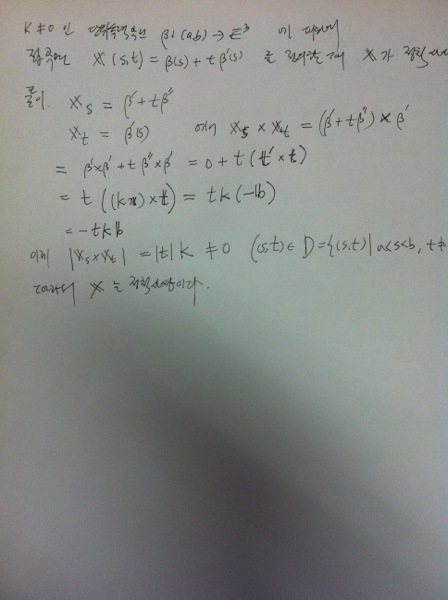 K≠0 인 단위속력곡선 β:(a,b)→E³ 에 대하여
접곡면 X(s,t) = β(s) + tβ'(s) 를 정의할 때 X가 정칙
풀이. Xs = β' + tβ''
Xt = β'(s) 에서 Xs × Xt = (β' + tβ'') × β'
= β'×β' + tβ''×β' = 0 + t(t'×t)
= t((kn)×t) = tk(-b)
= -tkb
이제 |Xs×Xt| = |t|K ≠0 (s,t)∈D={(s,t)|a<s<b, t≠
따라서 X는 정칙사상이다.